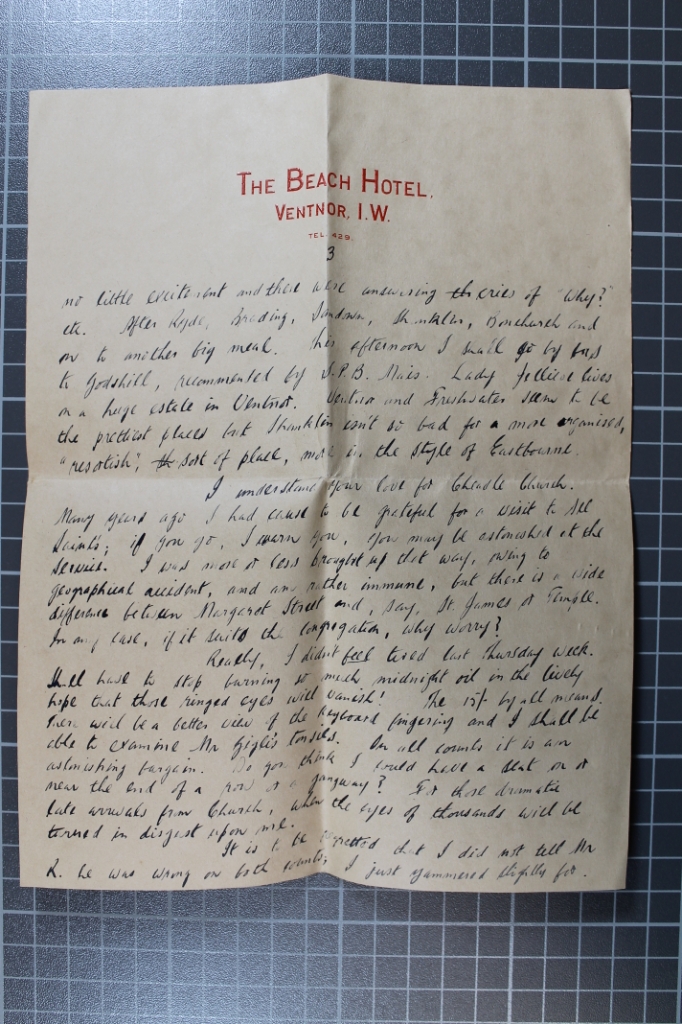 THE BEACH HOTEL,
VENTNOR, I.W.
TEL. 429.
3
no little excitement and there were answering cries of "Why?"
etc. After Ryde, Brading, Sandown, Shanklin, Bonchurch and
on to another big meal. This afternoon I shall go by bus
to Godshill, recommended by S.P.B. Mais. Lady Jellicoe lives
on a huge estate in Ventnor. Ventnor and Freshwater seem to be
the prettiest places but Shanklin isn't so bad for a more organised,
"resortish", sort of place, more in the style of Eastbourne.
I understand your love for Cheadle Church.
Many years ago I had cause to be grateful for a visit to All
Saints; if you go, I warn you, you may be astonished at the
service. I was more or less brought up that way, owing to
geographical accident, and am rather immune, but there is a wide
difference between Margaret Street and, say, St. James or Temple.
In any case, if it suits the congregation, why worry?
Really, I didn't feel tired last Thursday week.
Shall have to stop burning so much midnight oil in the lively
hope that those ringed eyes will vanish! The 15/- by all means.
There will be a better view of the keyboard fingering and I shall be
able to examine Mr Gigli's tonsils. On all counts it is an
astonishing bargain. Do you think I could have a seat on or
near the end of a row or a gangway? For those dramatic
late arrivals from Church, when the eyes of thousands will be
turned in disgust upon me.
It is to be regretted that I did not tell Mr
R. he was wrong on both counts; I just yammered slightly for.